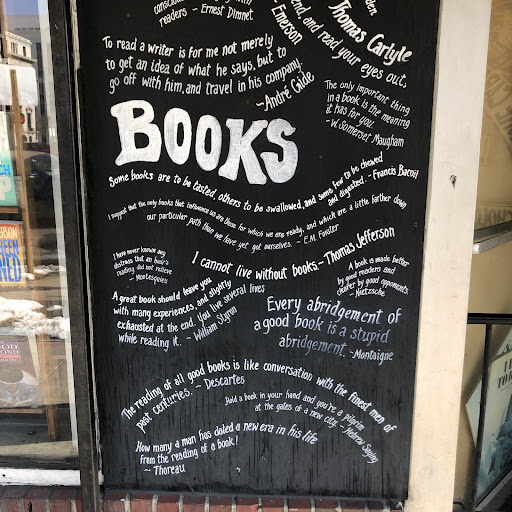 readers ~ Ernest Dimnet
Emerson
end, and read your eyes out,
Thomas Carlyle
To read a writer is for me not merely
to get an idea of what he says, but to
go off with him, and travel in his company.
~André Gide
The only important thing
in a book is the meaning
it has for you.
~W. Somerset Maugham
BOOKS
Some books are to be tasted, others to be swallowed, and some few to be chewed
and digested. ~ Francis Bacon
I suggest that the only books that influence us are those for which we are ready, and which are a little farther down
our particular path than we have yet got ourselves. ~ E.M. Forster
I have never known any
distress that an hour's
reading did not relieve
~Montesquieu
I cannot live without books.~Thomas Jefferson
A book is made better
by good readers and
clearer by good opponents.
~Nietzsche
A great book should leave you
with many experiences, and slightly
exhausted at the end. You live several lives
while reading it. ~ William Styron
Every abridgement of
a good book is a stupid
abridgement. ~Montaigne
The reading of all good books is like conversation with the finest men of
past centuries. ~ Descartes
Hold a book in your hand and you're a pilgrim
at the gates of a new city. ~ Hebrew Saying
How many a man has dated a new era in his life
from the reading of a book!
~ Thoreau